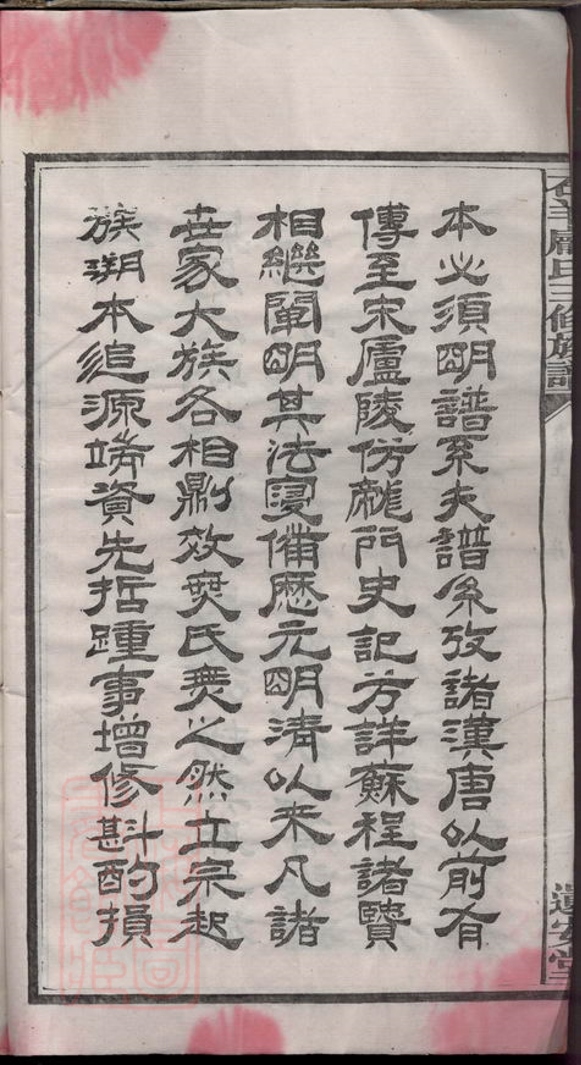 石羊龐氏三修族譜
遺安堂
本必須明譜系夫譜系攷諸漢唐以前有
傳至宋廬陵仿龍門史記詳蘇程諸賢
相繼闡明其法寖備歷元明清以來凡諸
世家大族各相則效氏之然立宗起
族溯本追源端資先哲踵事增修斟酌損